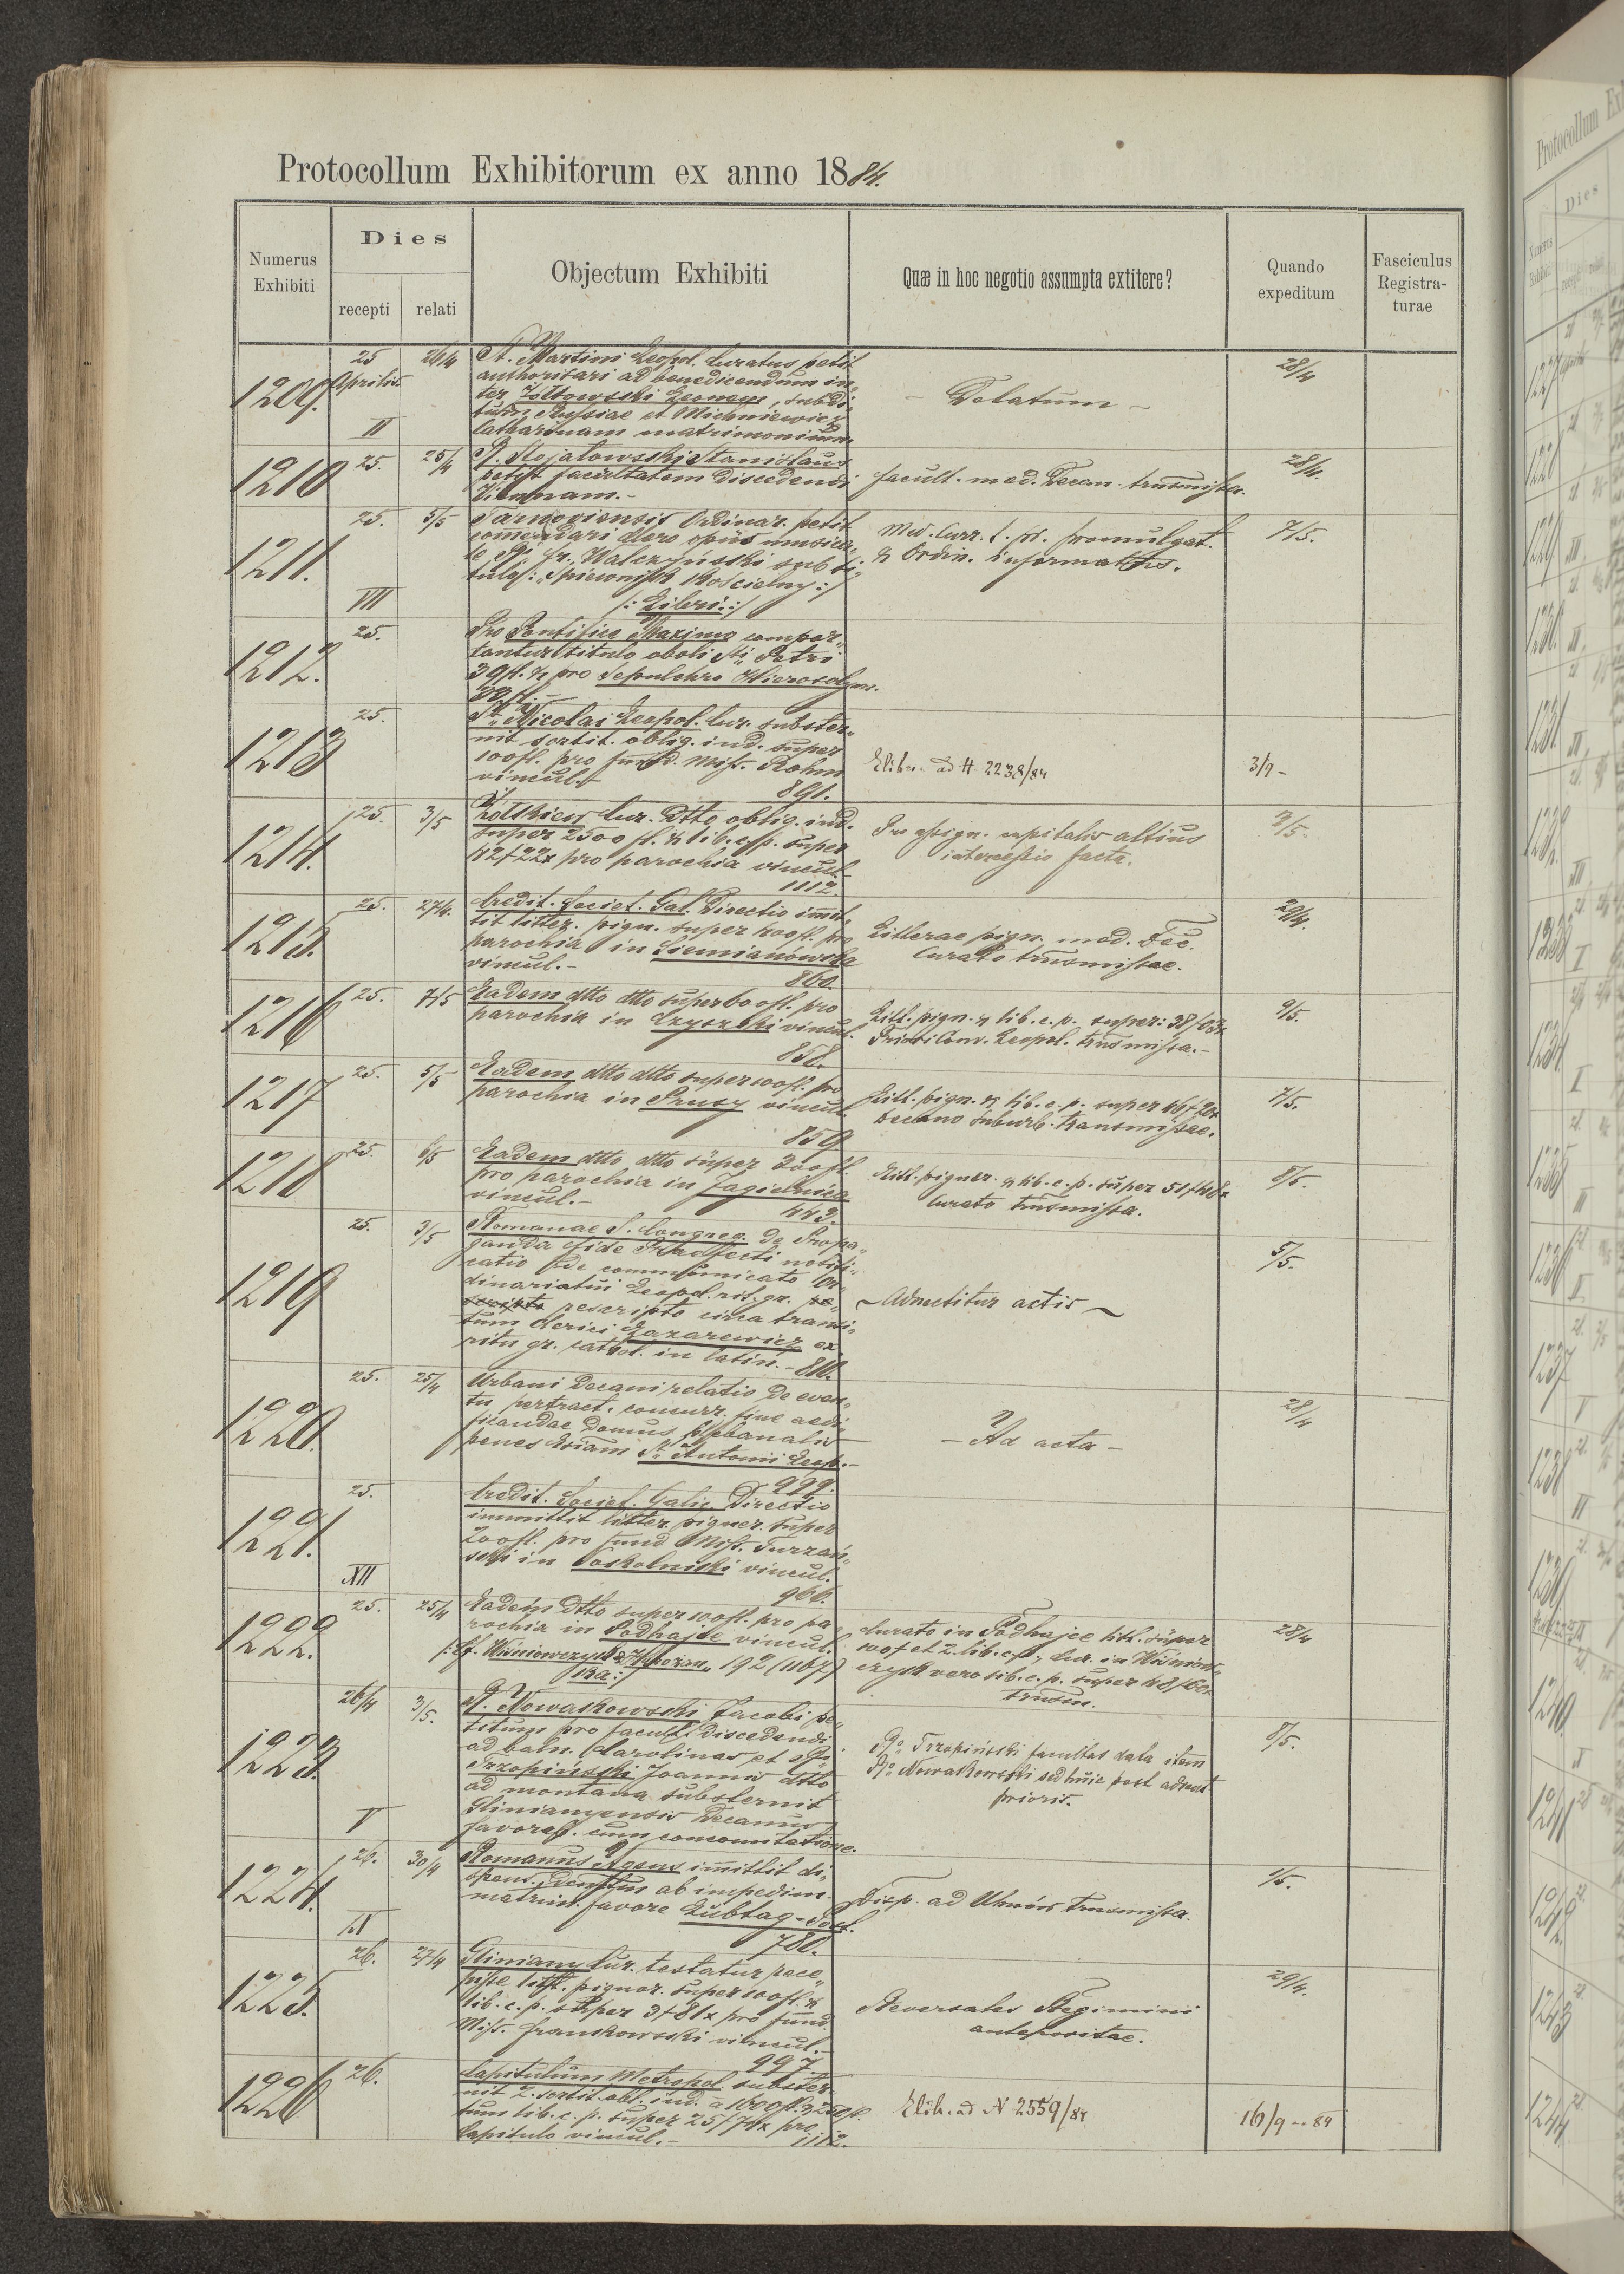 Protocollum Exhibitorum ex anno 1884.
Numerus Exhibiti
Dies
recepti
relati
Objectum Exhibiti
Quæ in hoc negotio assumpta extitere?
Quando expeditum
Fasciculus Registra-
turae
1209.
25 Aprilis
II
26/4
St. Martini Leopol. Curatus petit
authoritari ad benedicendum in„
ter Żółtowski Leonem, subdi„
tum Russiae et Michniewicz
Catharinam matrimonium.
– Delatum –
28/4
1210
25.
25/4
R. Stojałowski Stanislaus
petit facultatem discedendi
Viennam.–
facult. med. Decan. trnsmissa.
28/4.
1211.
25.
VII
5/5
Tarnoviensis Ordinar. petit
comendari Clero opus musica„
le Fr. Walczyński sub ti„
tulo /: Śpiewnik Kościelny :/
/: Libri :/
Med. Curr. promulgat.
& Ordin. informatus.
7/5.
1212.
25.
Pro Pontifice Maximo compor„
tantur titulo oboli Sti Petri
39 fl. & pro Sepulchro Hierosolym.
1213
25.
St. Nicolai Leopol. Cur. subster„
nit sortit. oblig. ind. super
100 fl. pro fund. Miss. Rohm
vincul.–
891.
Elib. ad N 2238/84
3/9 –
1214.
25.
3/5
Żółkiew Cur. dtto oblig. ind.
super 2500 fl. & lib. c. p. super
pro parochia vincul.–
1112.
Pro assign. capitalis altius
intercessio facta.
3/5.
1215.
25.
27/4.
Credit. Societ. Gal. Directio immit„
tit litter. pign. super 400 fl. pro
parochia in Siemianówka
vincul.–
860.
Litterae pign. med. Dec.
Curato trnsmissae.
29/4.
1216
25.
7/5
Eadem dtto dtto super 600 fl. pro
parochia in Czyszki vincul.
858.
Litt. pign. & lib. c. p. super:
Conv. Leopol. trnsmissa.–
9/5.
1217
25.
5/5
Eadem dtto dtto super 100 fl. pro
parochia in Prusy vincul.
859
Litt. pign. & lib. c. p. super
Decano Suburb. transmissae.
7/5.
1218
25.
6/5
Eadem dtto dtto super 300 fl.
pro parochia in Jagielnica
vincul.–
443.
Litt. pigner. & lib. c. p. super
Curato trnsmissa.
8/5.
1219
25.
3/5
Romanae S. Congreg. de Propa„
ganda fide Praefecti notifi„
catio de communicato Or„
dinariatui Leopol. rit. gr. re„
scripto rescripto circa transi„
tum clerici Lazarewicz ex
ritu gr. cathol. in latin.– 810.
– Adnectitur actis –
5/5.
1220.
25.
25/4
Urbani Decani relatio de even„
tu pertract. concurr. fine aedi„
ficandae domus plebanalis
penes St. Antonii Leop.–
999.
– Ad acta –
28/4
1221.
25.
XII
Credit. Societ. Galic. Directio
immittit litter. pigner. super
200 fl. pro fund Miss. Turzań„
ski in Toskolniki vincul.
966.
1222.
25.
25/4
Eadem dtto super 100 fl. pro pa„
rochia in Podhajce vincul.
/: Cf. Wiśniowczyk 192 (1167)
Curato in Podhajce litt. super
100 f et 2 lib. c. p., Cur. in Wiśniow„
czyk vero lib. c. p. super
trnsm.
28/4
1223.
26/4
V
3/5.
R. Nowakowski Jacobi pe„
titum pro facult. discedendi
ad baln. Carolinas et
Trzopiński Joannis dtto
ad montana substernit
Glinianyensis Decanus
favorab. cum concomitatione.
Trzopiński facultas data item
Nowakowski sed huic post advent
prioris.
8/5.
1224.
26.
IX
30/4
Romanus Agens immittit di„
spens. ab impedim.
matrim. favore Lubtag –
780.
Disp. ad Uhnów trnsmissa.
1/5.
1225.
26.
27/4
Gliniany Cur. testatur rece„
pisse litt. pignor. super 100 fl. &
lib. c. p. super 3 f 81 x pro fund.
Miss. Frankowski vincul.–
997
Reversales Regimini
antepositae.
29/4.
1226
26.
Capitulum Metropol. subster„
nit 2 sortit. obl. ind. a 1600 fl. & 250 fl.
tum lib. c. p. super pro
Capitulo vincul.–
1112.
Elib. ad N 2559/84
16/9 – 84